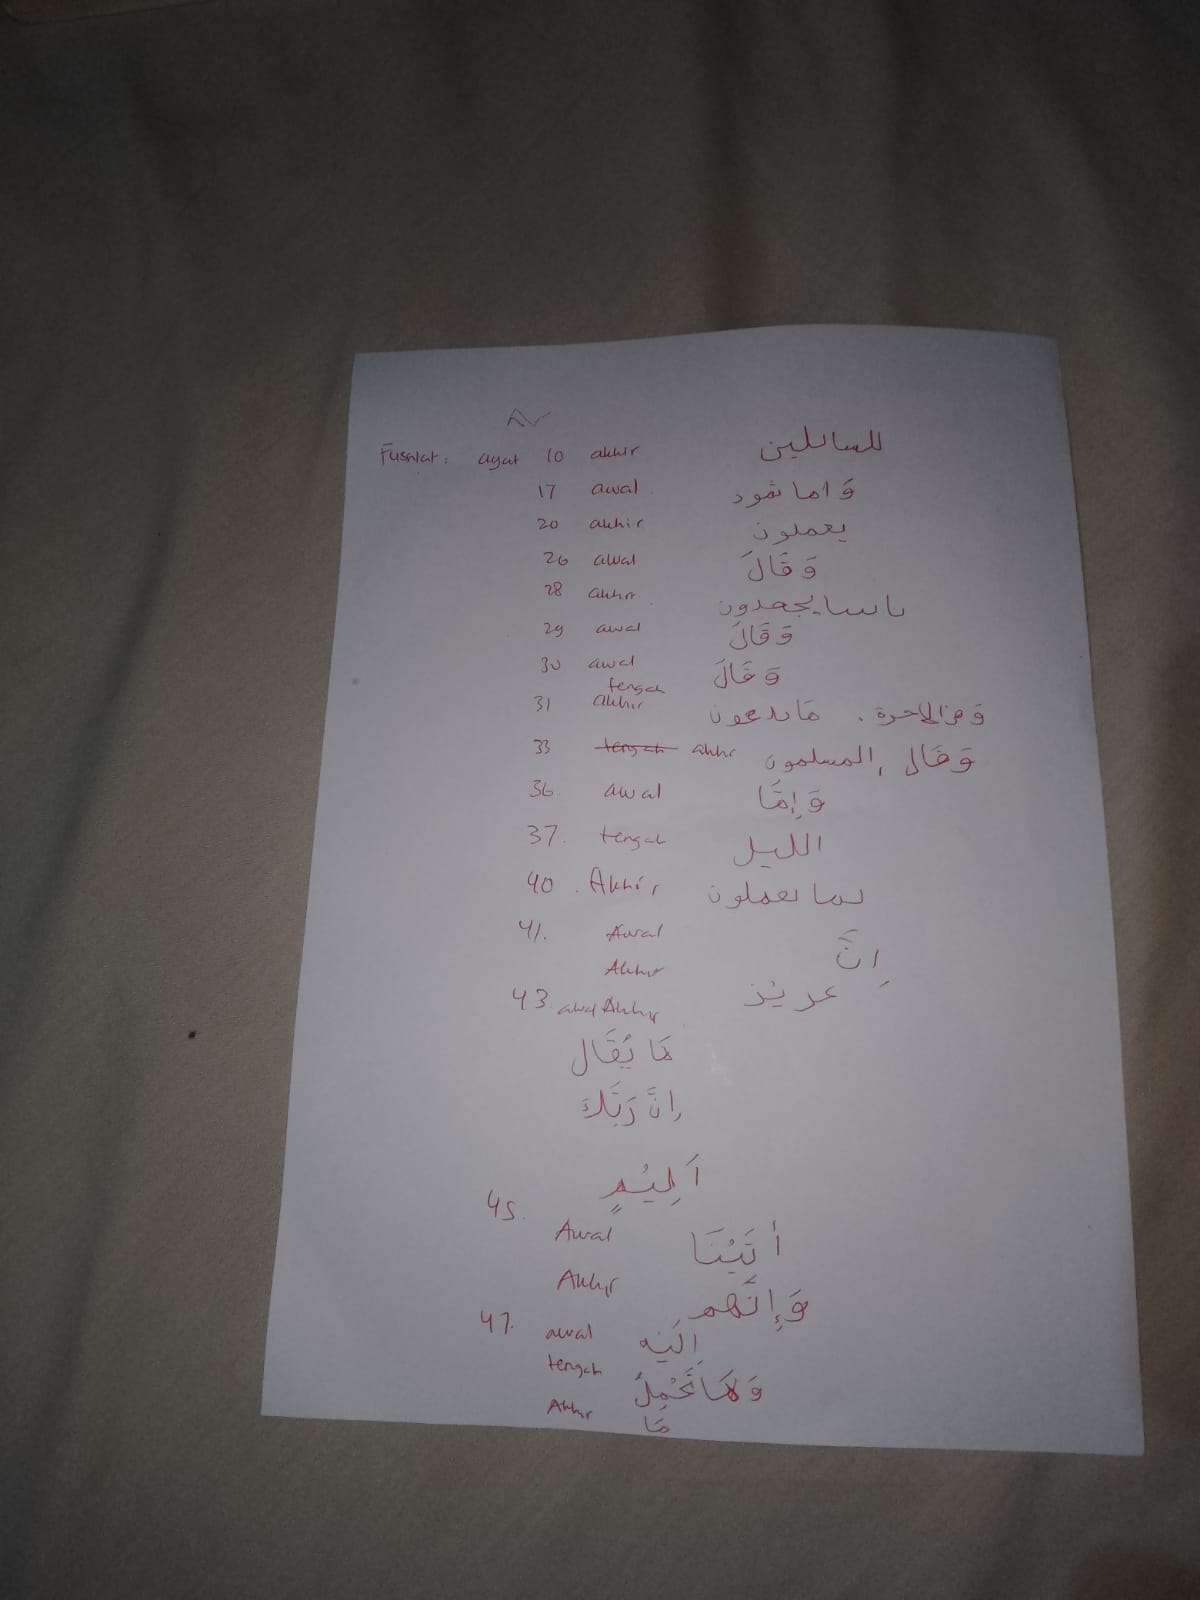 Fusilat: ayat 10 akhir للسائلين
17 awal وَ اما ثمود
20 akhir يعملون
26 awal وَ قَالَ
28 akhir باىىىا يجحدون
29 awal وَ قَالَ
30 awal وَ قَالَ
31 tengah akhir وَ من الاخرة . مَا تدعون
33 tengah akhir وَ قَال المسلمون
36 awal وَ إِمَّا
37. tengah الليل
40. Akhir بما تعملون
41. Awal اِنَّ
Akhir عزيز
43. awal Akhir
مَا يُقَال
اِنَّ رَبَّكَ
اَلِيْمٍ
45. Awal اٰتَيْنَا
Akhir وَإِنَّهم
47. awal اِلَيْه
tengah وَ مَا تَحْمِلُ
Akhir مَا